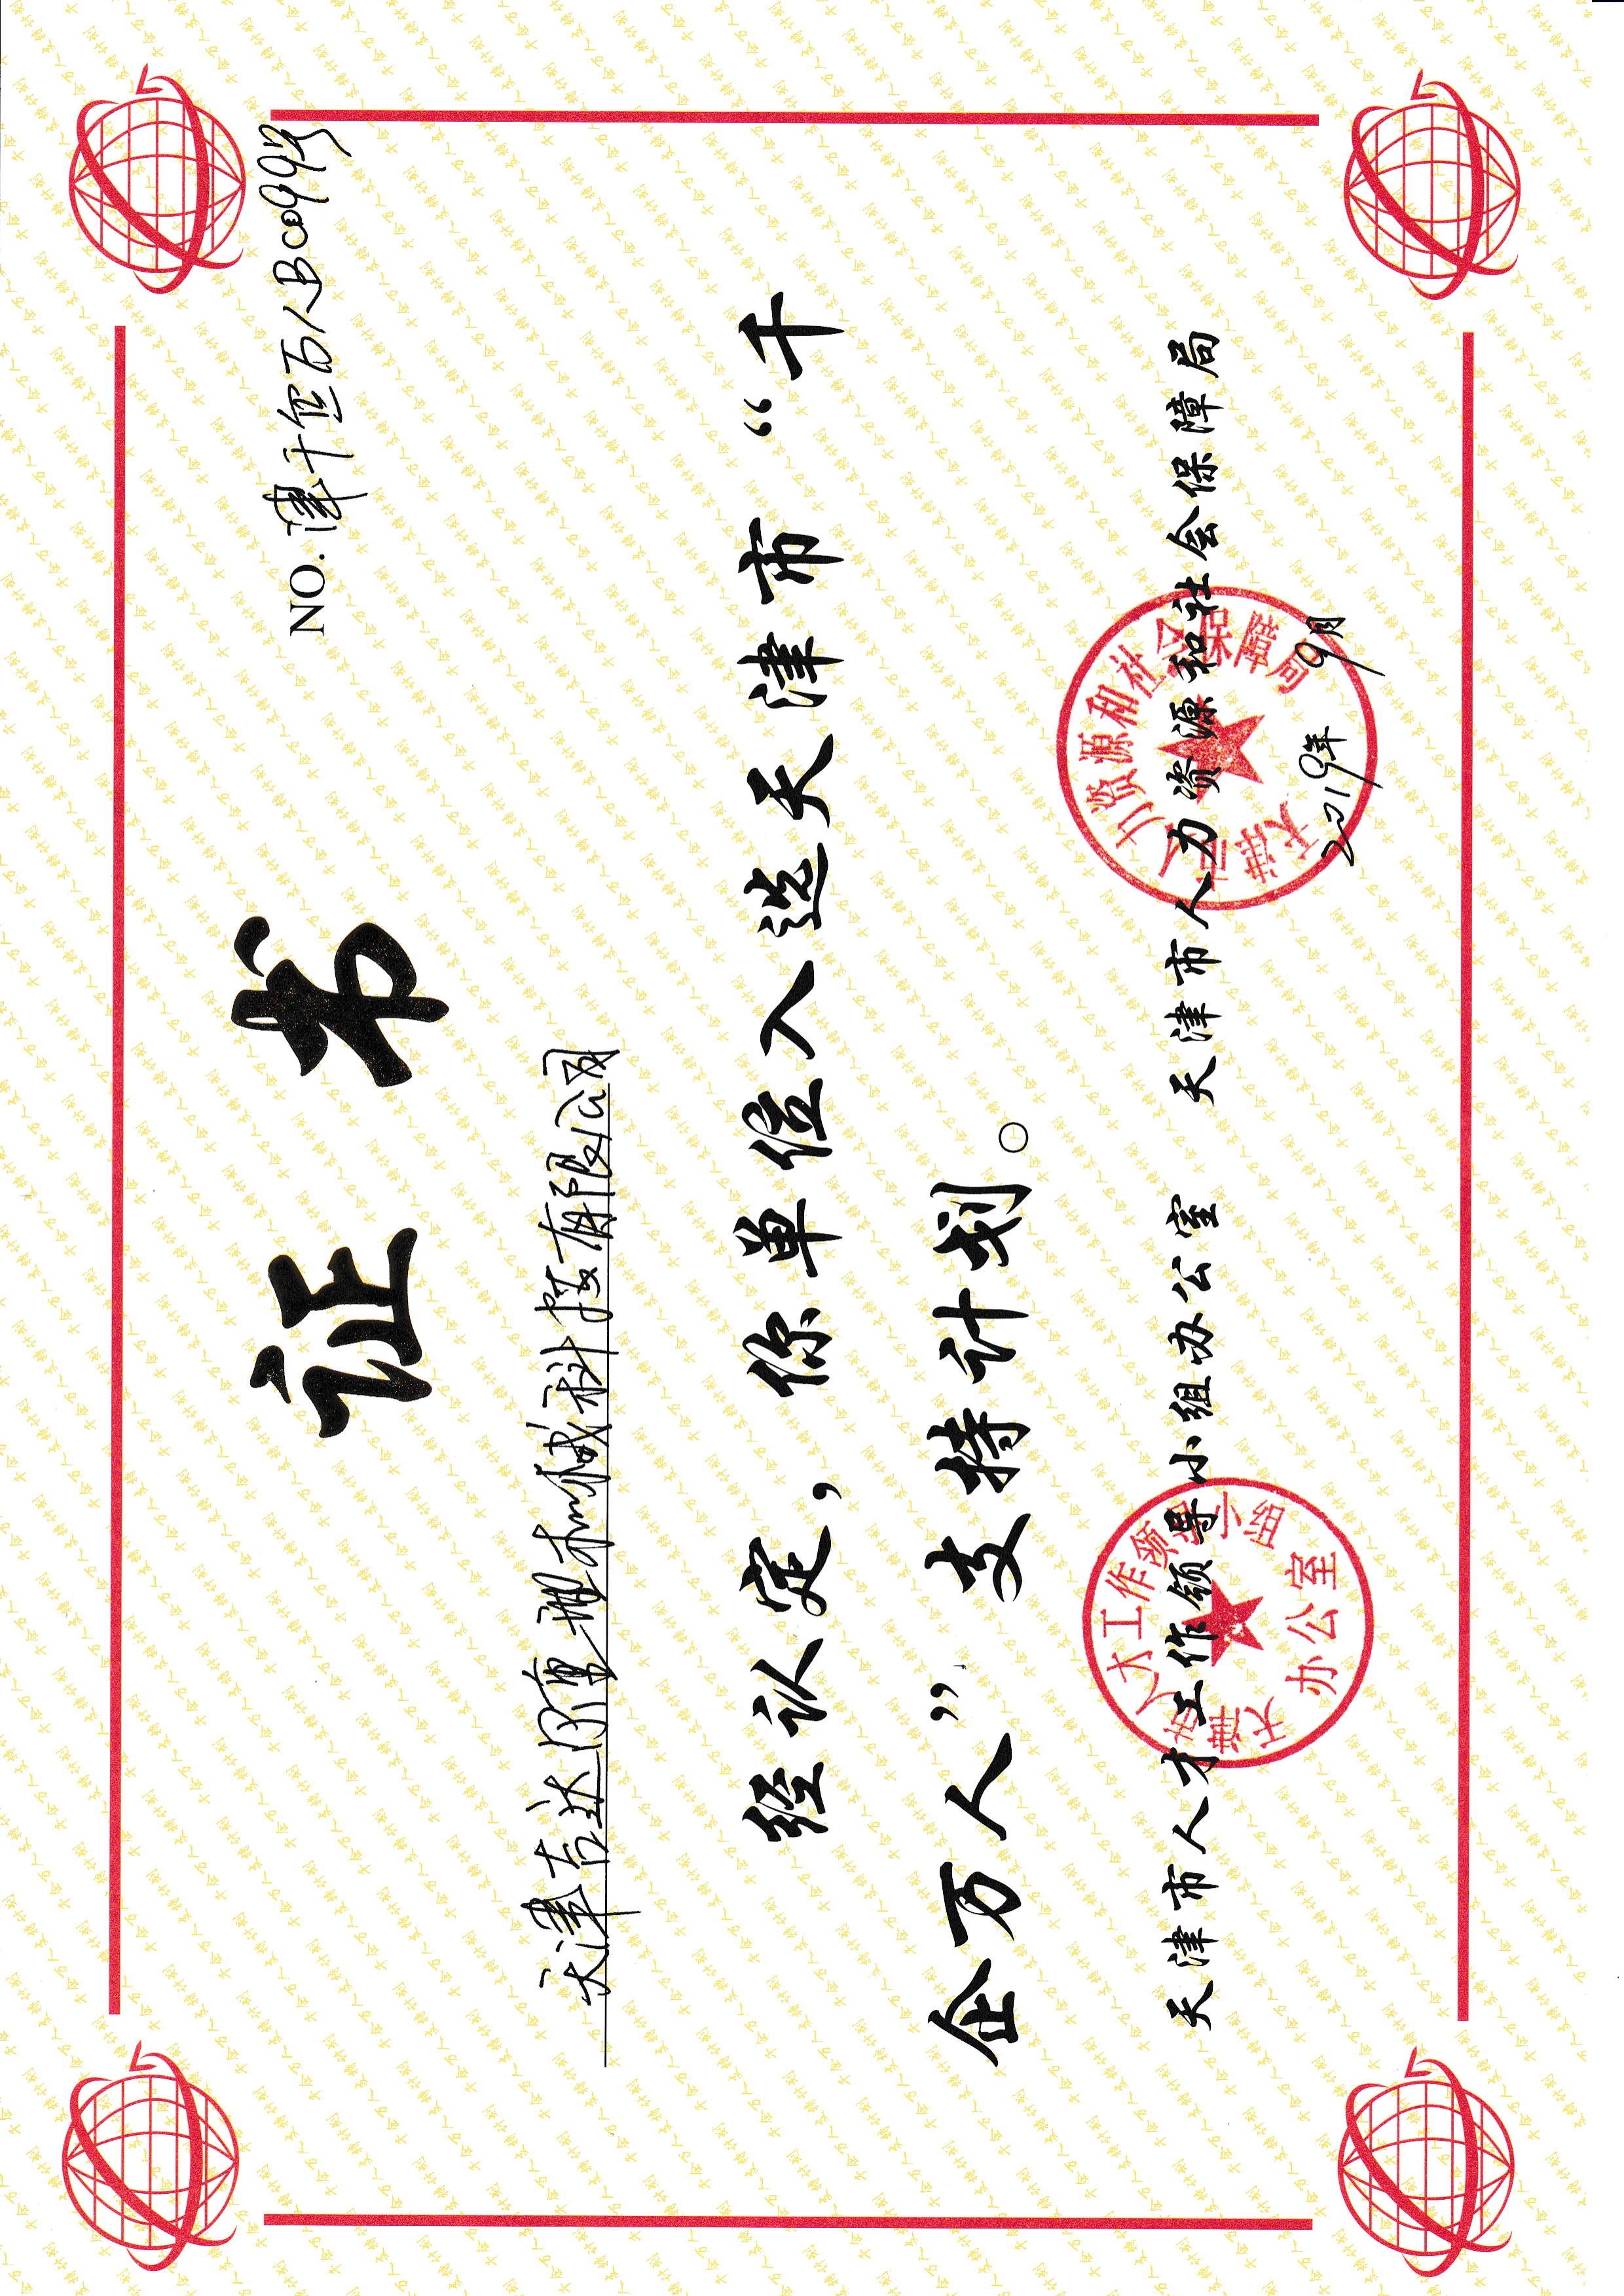 NO.津千企万人B0099号
证 书
天津吉达尔重型机械科技有限公司
经认定，你单位入选天津市“千
企万人”支持计划。
天津市人才工作领导小组办公室 天津市人力资源和社会保障局
2019年 9月
天津市人才工作领导小组
办公室
天津市人力资源和社会保障局